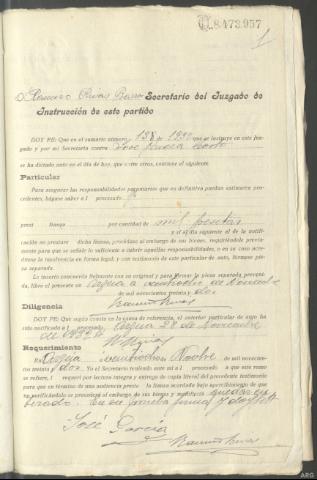 8.473.957
1
Rivas Secretario del Juzgado de
Instrucción de este partido
DOY FE: Que en el sumario número 158 de 1932 que se instruye en este Juz-
gado y por mi Secretaría contra José García
se ha dictado auto en el día de hoy, que entre otros, contiene el siguiente
Particular
Para asegurar las responsabilidades pecuniarias que en definitiva puedan estimarse pro-
cedentes, hágase saber a l procesado
prest fianza por cantidad de mil pesetas
y si el día siguiente al de la notifi-
cación no prestare dicha fianza, procédase al embargo de sus bienes, requiriéndole previa-
mente para que se señale lo suficiente a cubrir aquellas responsabilidades, o en su caso acre-
dítese la insolvencia en forma legal; y con testimonio de este particular de auto, fórmese pie-
za separada.
Lo inserto concuerda fielmente con su original y para formar la pieza separada preceptua-
da, libro el presente en veintiocho de Noviembre
de mil novecientos treinta y dos
Diligencia
DOY FE: Que según consta en la causa de referencia, el anterior particular de auto ha
sido notificado a l procesado. 28 de Noviembre
de 1932
Requerimiento
En veintiocho Novbre de mil novecien-
tos treinta y dos. Yo el Secretario teniendo ante mí a l procesado a que este auto
se refiere, l requerí por lectura íntegra y entrega de copia literal del precedente testimonio
para que en término de una audiencia preste la fianza acordada bajo apercibimiento de que
no verificándolo se procederá al embargo de sus bienes y manifiesta quedar en-
terado. En su prueba firma y doy fe
José García
ARG